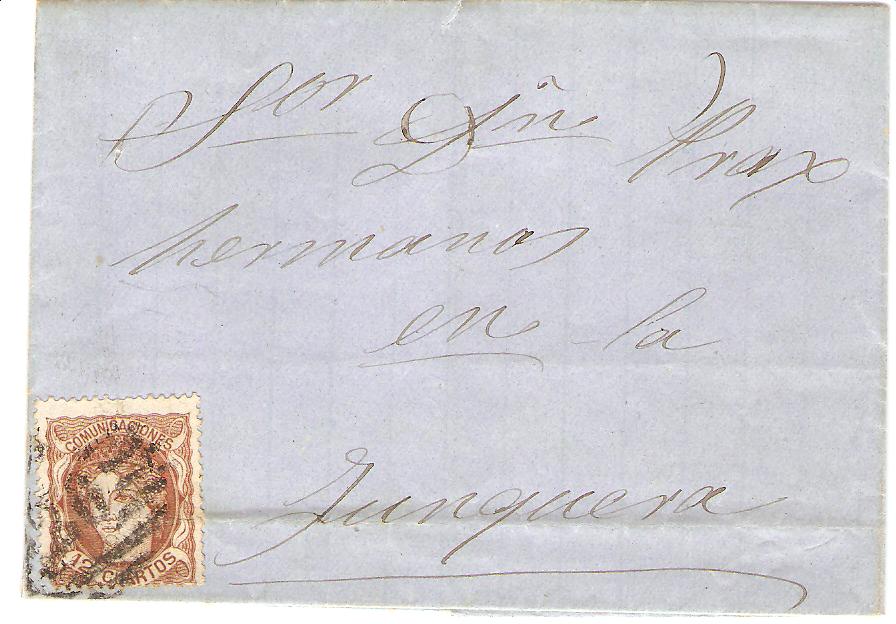 Sor Dñn Prax
hermanos
en la
Junquera
COMUNICACIONES
12 CUARTOS